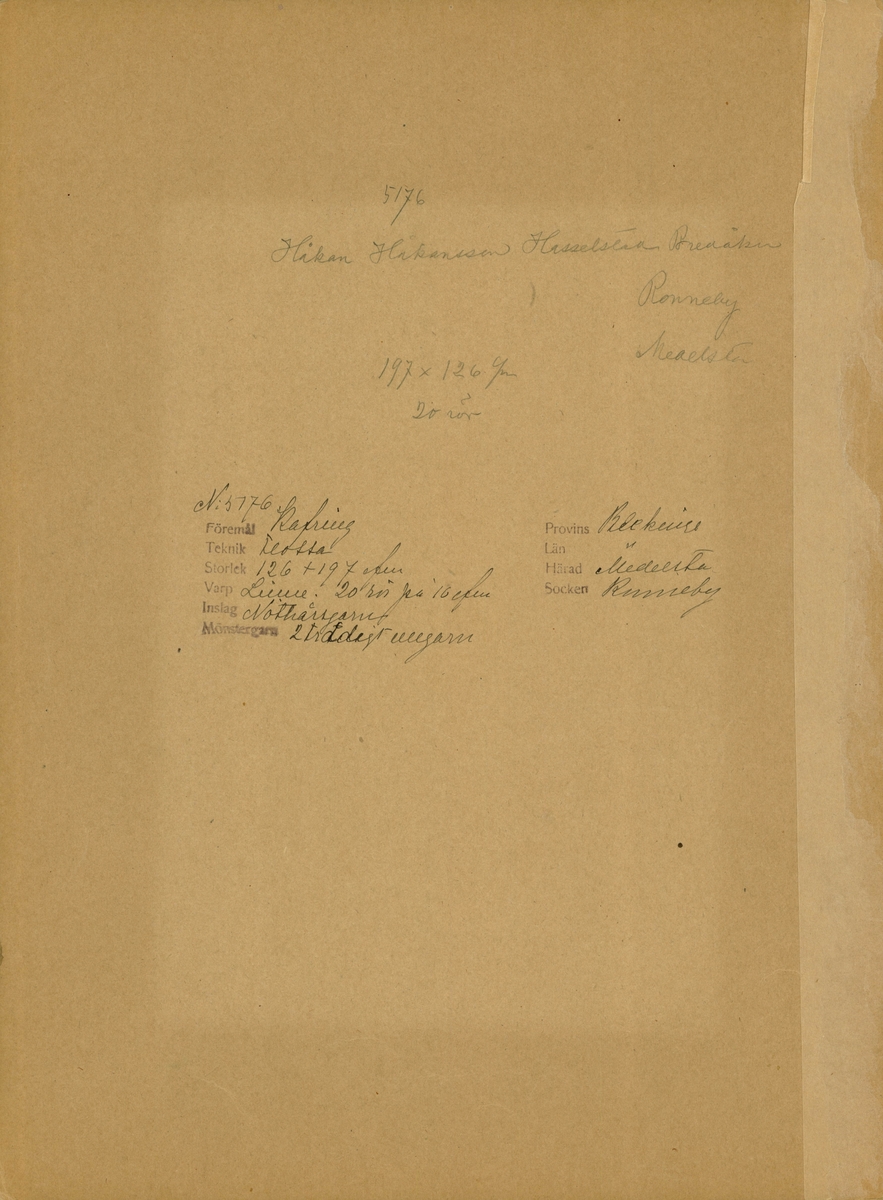 5176
Håkan Håkansson Hasselstad Bredåkra
Ronneby
Medelsta
197 x 126 c/m
20 rör
No 5176
Föremål
Teknik Flossa
Storlek 126 + 197 c/m
Varp Linne. 20 rör på 10 c/m
Inslag Nöthårsgarn
Mönstergarn 2 trådigt ullgarn
Provins Blekinge
Län
Härad Medelsta
Socken Ronneby